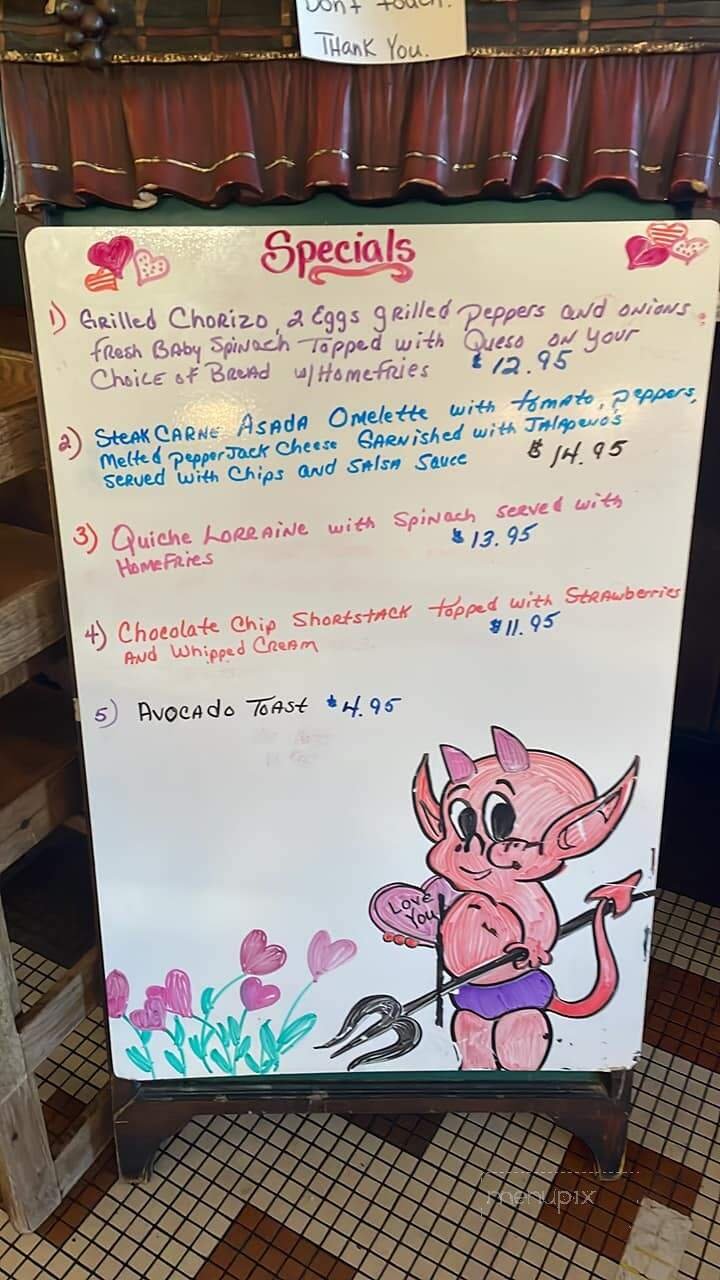 Don't touch.
THank You.
Specials
1) Grilled Chorizo, 2 Eggs grilled Peppers and onions
fresh Baby Spinach Topped with Queso on Your
Choice of Bread w/Homefries $12.95
2) Steak Carne Asada Omelette with tomato, peppers,
Melted PepperJack Cheese Garnished with Jalapeno's
served with Chips and Salsa Sauce $14.95
3) Quiche Lorraine with Spinach served with
HomeFries $13.95
4) Chocolate Chip Shortstack topped with Strawberries
And Whipped Cream $11.95
5) Avocado Toast $4.95
Love
You
menupix